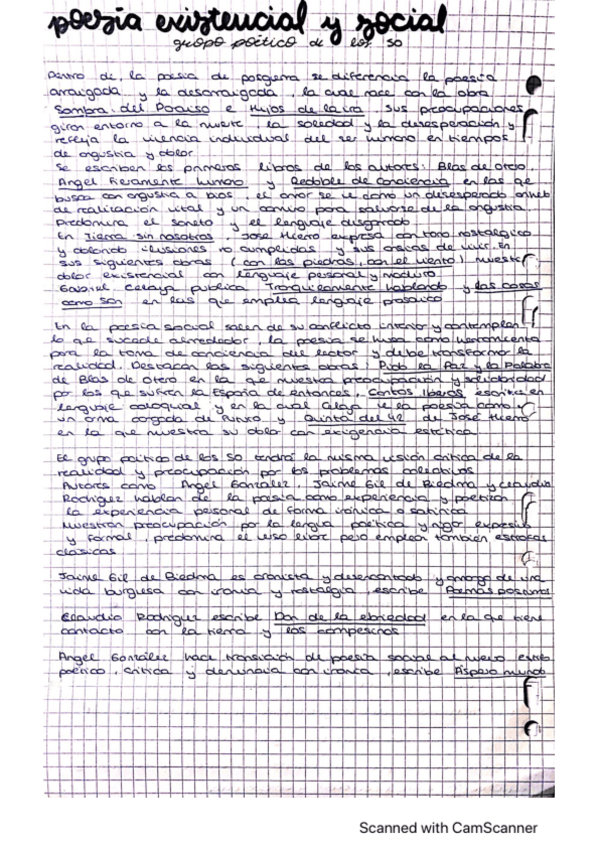 poesía existencial y social
grupo poético de los 50
Dentro de, la poesía de posguerra se diferencia la poesía
arraigada y la desarraigada, la cual nace con la obra
Sombra del Paraíso e Hijos de la ira sus preocupaciones
giran entorno a la muerte la soledad y la desesperación y
refleja la vivencia individual del ser humano en tiempos
de angustia y dolor.
Se escriben los primeros libros de los autores: Blas de Otero,
Angel fieramente humano y Redoble de conciencia en las que
busca con angustia a Dios, el amor se ve como un desesperado anhelo
de realización vital y un camino para salvarse de la angustia.
Predomina el soneto y el lenguaje desgarrado
En Tierra sin nosotros, José Hierro expresa con tono nostálgico
y dolorido ilusiones no cumplidas y sus ansias de vivir. En
sus siguientes obras (con las piedras, con el viento) muestra
dolor existencial con lenguaje personal y maduro
Gabriel Celaya publica Tranquilamente hablando y las cosas
como son en las que emplea lenguaje prosaico
En la poesía social salen de su conflicto interior y contemplan
lo que sucede alrededor, la poesía se usa como herramienta
para la toma de conciencia del lector y debe transformar la
realidad. Destacan las siguientes obras: Pido la Paz y la Palabra
de Blas de Otero en la que muestra preocupación y solidaridad
por los que sufren la España de entonces, Cantos Iberos escrita en
lenguaje coloquial y en la cual Celaya ve la poesía como
un arma cargada de futuro y Quinta del 42 de José Hierro
en la que muestra su dolor con exigencia estética
El grupo poético de los 50 tendrá la misma visión crítica de la
realidad y preocupación por los problemas colectivos
Autores como Angel González, Jaime Gil de Biedma y Claudio
Rodríguez hablan de la poesía como experiencia y poetizan
la experiencia personal de forma irónica o satírica
Muestran preocupación por la lengua poética y rigor expresivo
y formal, predomina el verso libre pero emplean también estrofas
clásicas
Jaime Gil de Biedma es cronista y desencantado y amargo de una
vida burguesa con ironía y nostalgia, escribe Poemas postumos
Claudio Rodríguez escribe Don de la ebriedad en la que tiene
contacto con la tierra y los campesinos
Angel González hace transición de poesía social al nuevo estilo
poético, critica y denuncia con ironía, escribe Áspero mundo
Scanned with CamScanner